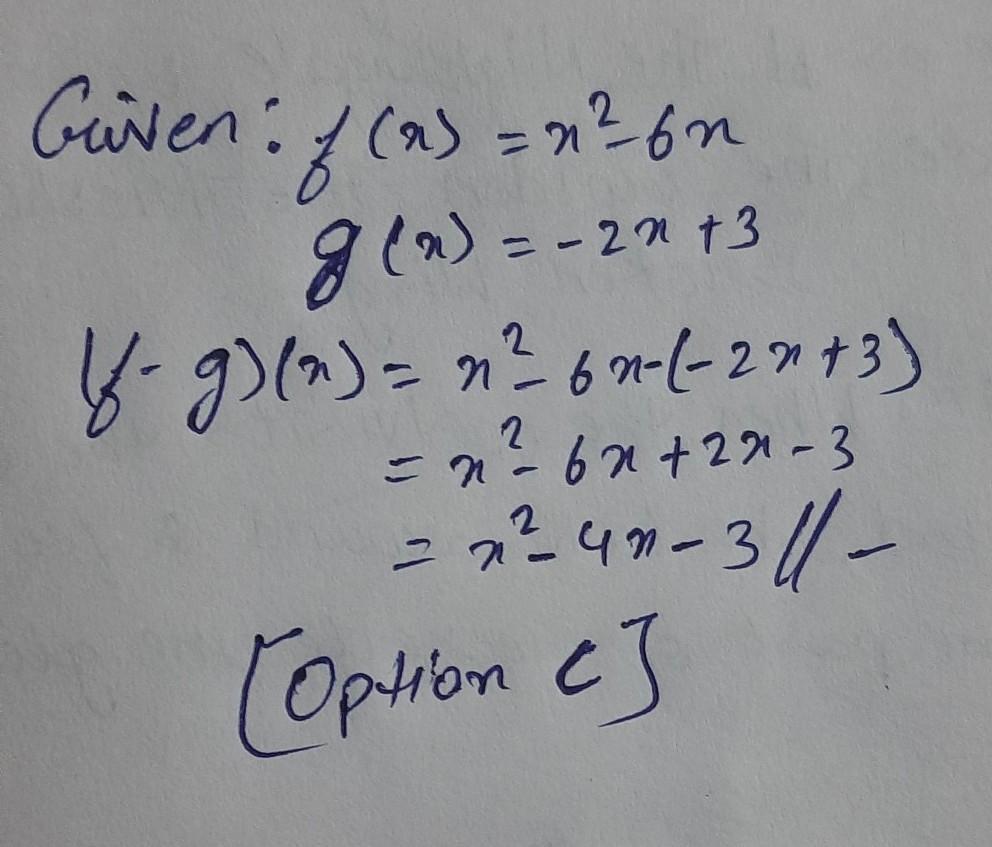 Given: f(x) = x² - 6x
g(x) = -2x + 3
(f - g)(x) = x² - 6x - (-2x + 3)
= x² - 6x + 2x - 3
= x² - 4x - 3 // -
[Option C]